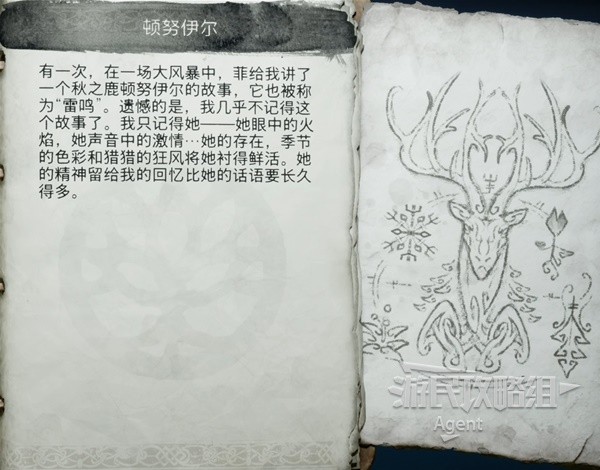 顿努伊尔
有一次，在一场大风暴中，菲给我讲了
一个秋之鹿顿努伊尔的故事，它也被称
为“雷鸣”。遗憾的是，我几乎不记得这
个故事了。我只记得她——她眼中的火
焰，她声音中的激情…她的存在，季节
的色彩和猎猎的狂风将她衬得鲜活。她
的精神留给我的回忆比她的话语要长久
得多。
游民攻略组
Agent